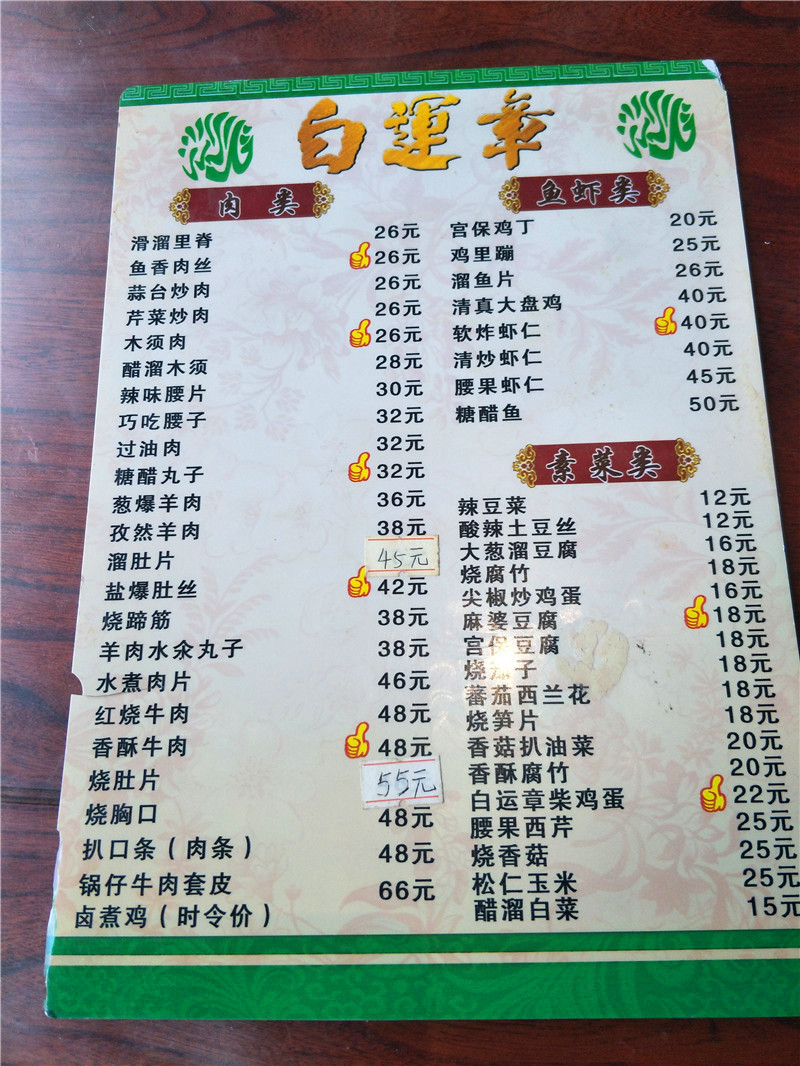 白運章
肉类
滑溜里脊 26元
鱼香肉丝 26元
蒜台炒肉 26元
芹菜炒肉 26元
木须肉 26元
醋溜木须 28元
辣味腰片 30元
巧吃腰子 32元
过油肉 32元
糖醋丸子 32元
葱爆羊肉 36元
孜然羊肉 38元
溜肚片 45元
盐爆肚丝 42元
烧蹄筋 38元
羊肉水汆丸子 38元
水煮肉片 46元
红烧牛肉 48元
香酥牛肉 48元
烧肚片 55元
烧胸口 48元
扒口条（肉条） 48元
锅仔牛肉套皮 66元
卤煮鸡（时令价）
鱼虾类
宫保鸡丁 20元
鸡里蹦 25元
溜鱼片 26元
清真大盘鸡 40元
软炸虾仁 40元
清炒虾仁 40元
腰果虾仁 45元
糖醋鱼 50元
素菜类
辣豆菜 12元
酸辣土豆丝 12元
大葱溜豆腐 16元
烧腐竹 18元
尖椒炒鸡蛋 16元
麻婆豆腐 18元
宫保豆腐 18元
烧茄子 18元
蕃茄西兰花 18元
烧笋片 18元
香菇扒油菜 20元
香酥腐竹 20元
白运章柴鸡蛋 22元
腰果西芹 25元
烧香菇 25元
松仁玉米 25元
醋溜白菜 15元